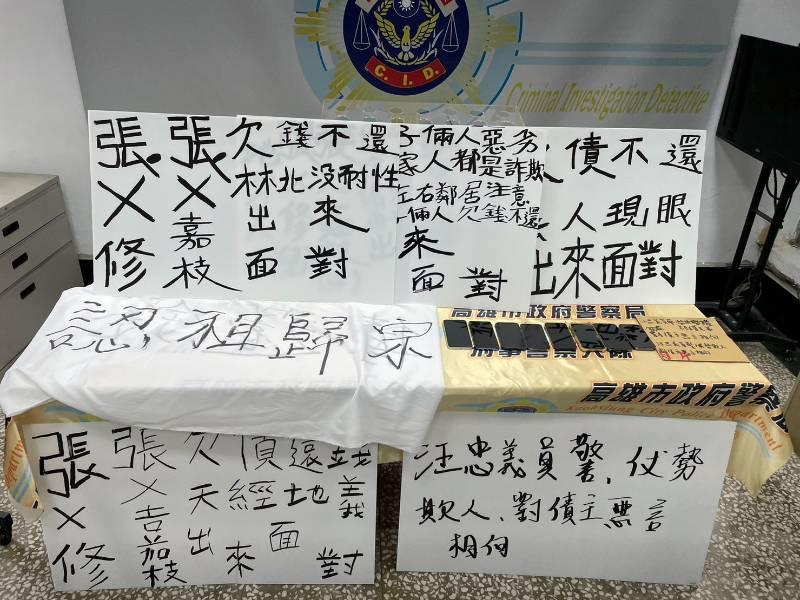 C.I.D.
Criminal Investigation Detective
張 張 欠 錢 不 還
林 北 沒 耐 性
X X 出 來
修 嘉枝 面 對
子 倆 人 惡 劣
家 人 都 是 詐 欺
左 右 鄰 居 注 意
倆 人 欠 錢 不 還
來
面 對
債 不 還
人 現 眼
出 來 面 對
認 祖 歸 宗
高雄市政府警察局
刑事警察大隊
高雄市政府警察局
Kaohsiung City Police Department
張 張 欠 債 還 錢
X X 天 經 地 義
修 吉茄枝 出 來 面 對
汪忠義員警,仗勢
欺人、對債主惡言
相向